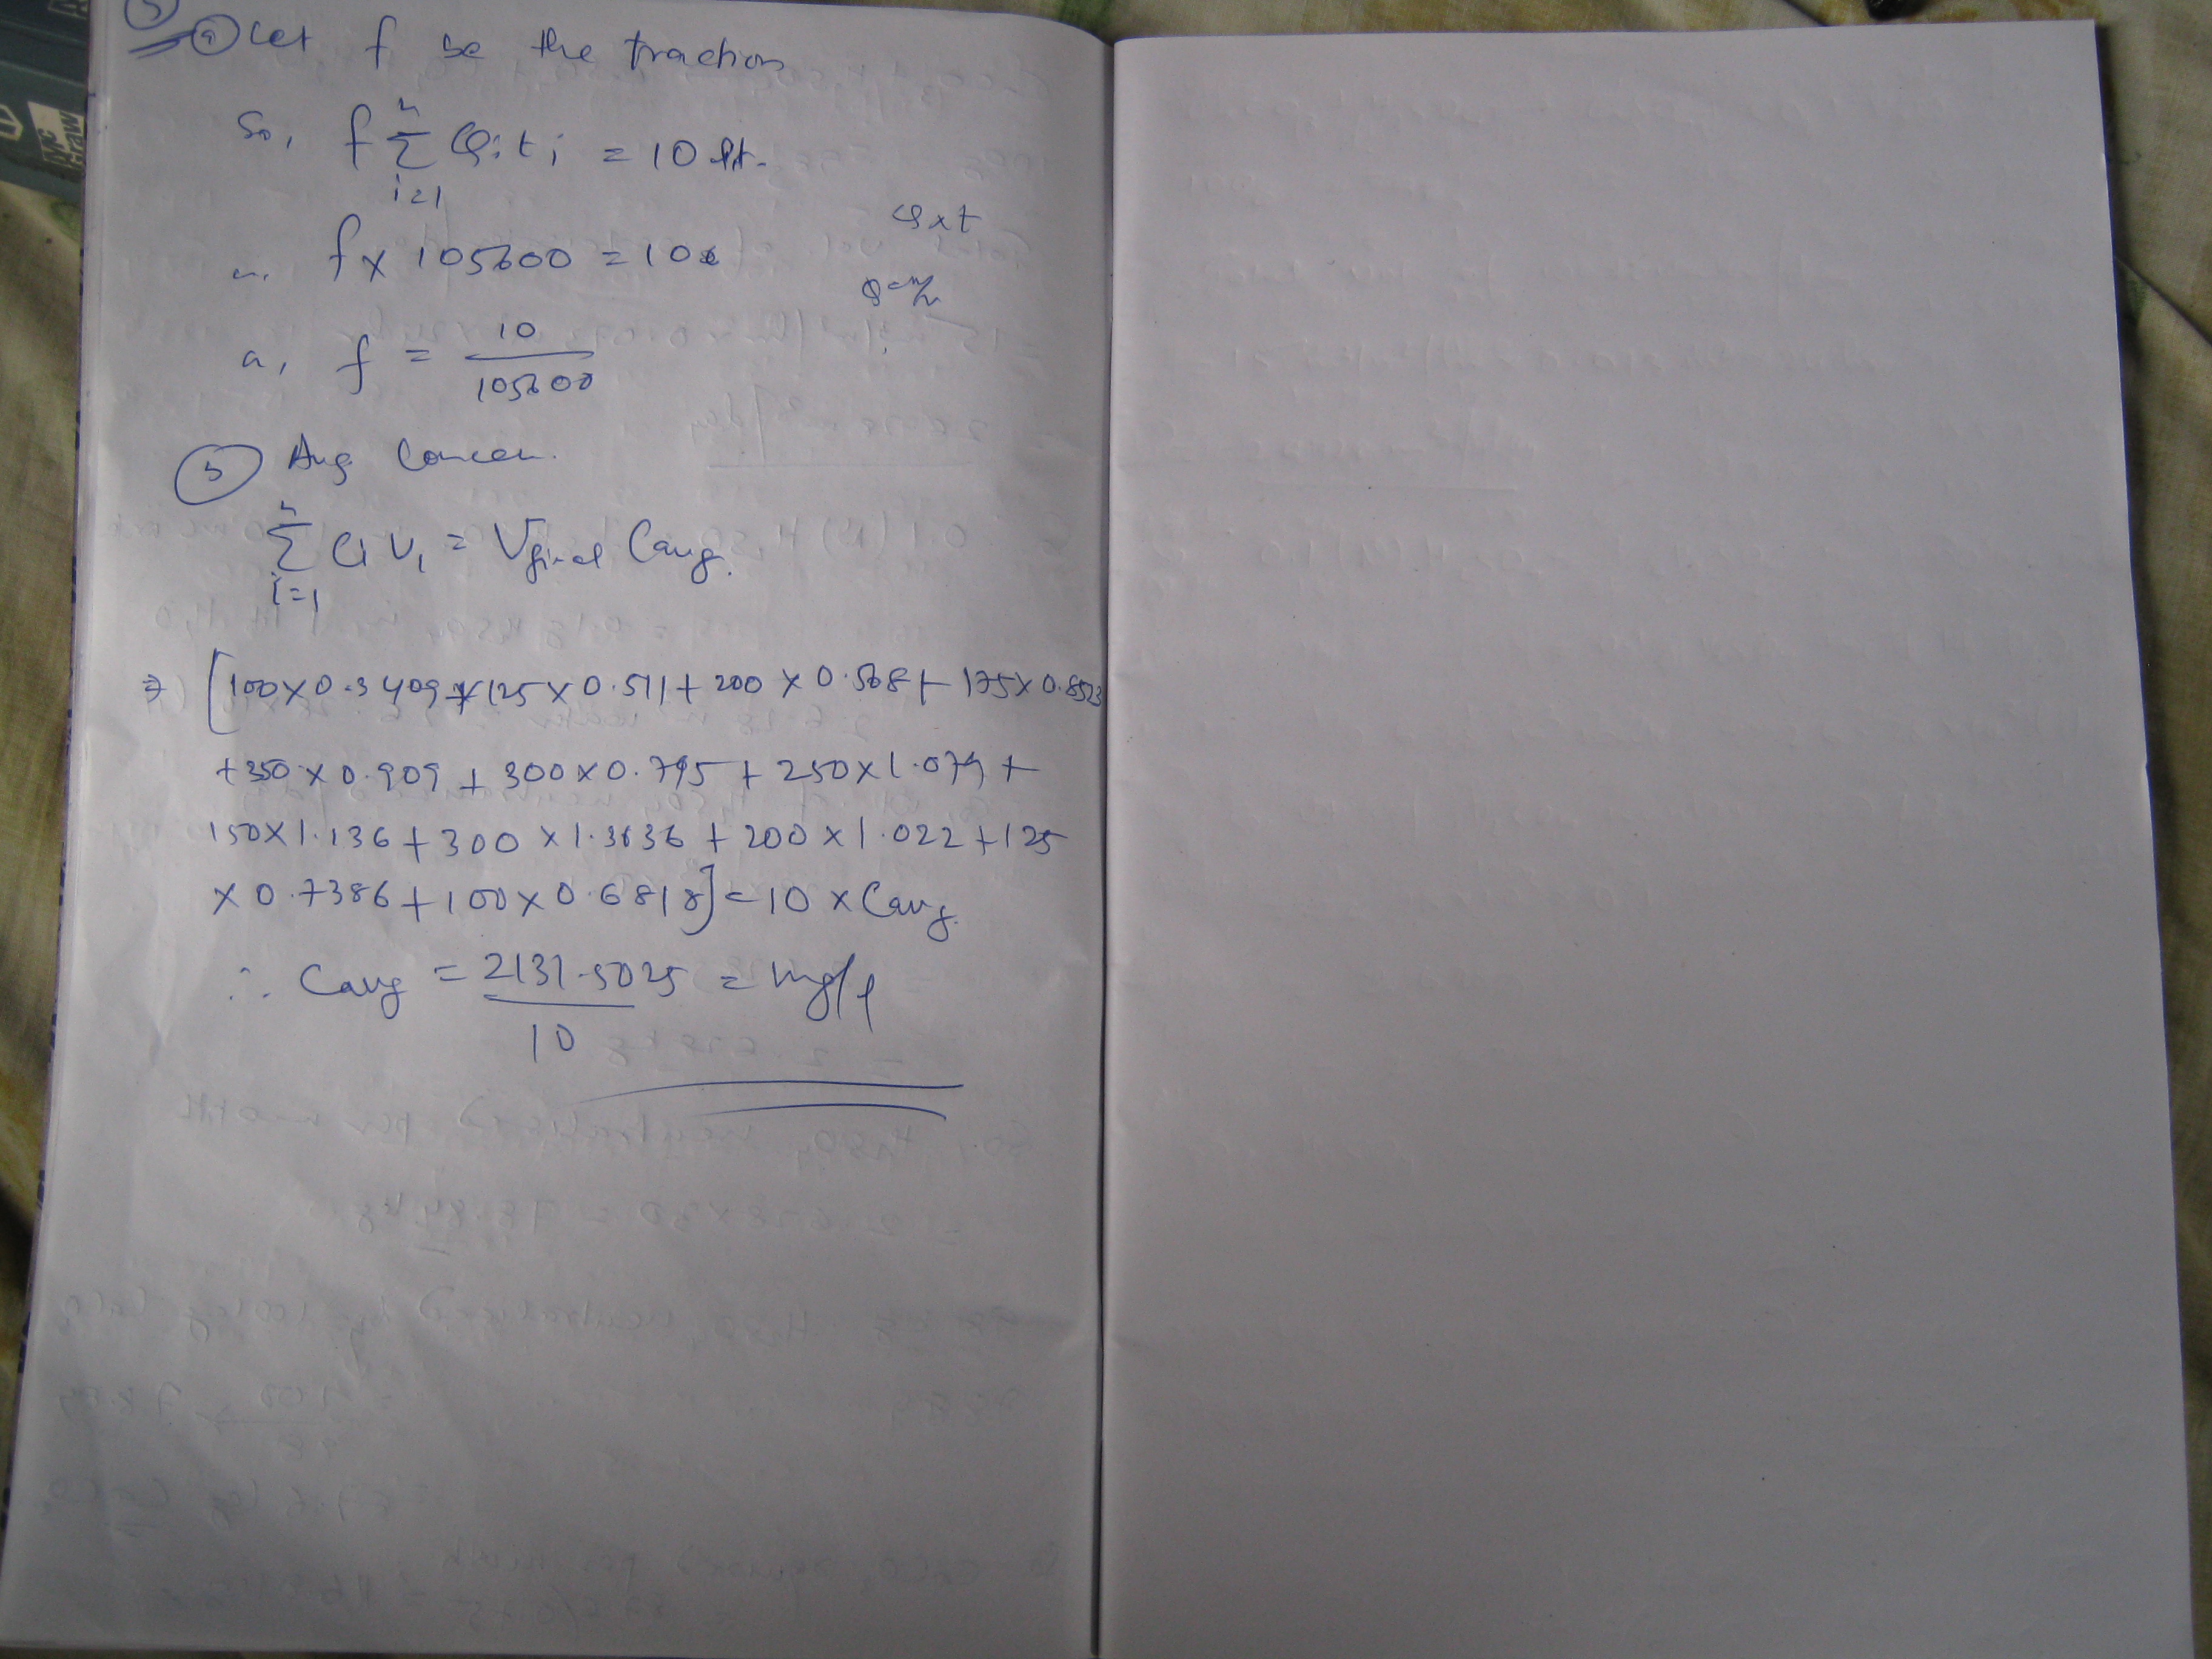 5
a Let f be the fraction
So, f n Σ i=1 Qi ti = 10 lt.
Q x t
f x 105600 = 10
a, f = 10 / 105600
b Avg Concen.
n Σ i=1 Ci Vi = Vfinal Cavg.
⇒ [100 x 0.3409 + 125 x 0.511 + 200 x 0.568 + 175 x 0.8523
+ 350 x 0.909 + 300 x 0.795 + 250 x 1.079 +
150 x 1.136 + 300 x 1.3636 + 200 x 1.022 + 125
x 0.7386 + 100 x 0.6818] = 10 x Cavg.
∴ Cavg = 2131.5025 / 10 = mg/l
Mc
Graw